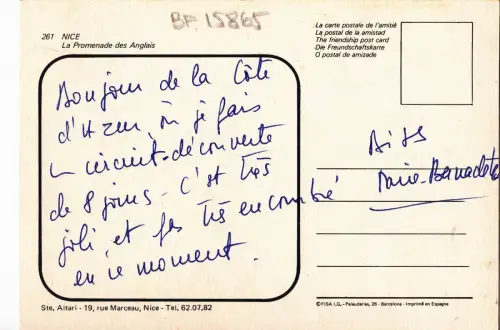 BF 15865
261 NICE
La Promenade des Anglais
La carte postale de l'amitié
La postal de la amistad
The friendship post card
Die Freundschaftskarte
O postal de amizade
Bonjour de la Côte
d'Azur, où je fais
un circuit-découverte
de 8 jours. C'est très
joli, et pas très encombré
en ce moment.
Bises
Marie-Bernadette
Ste, Aitari - 19, rue Marceau, Nice - Tel. 62.07.82
©FISA I.G. - Palaudarias, 26 - Barcelona - Imprimé en Espagne